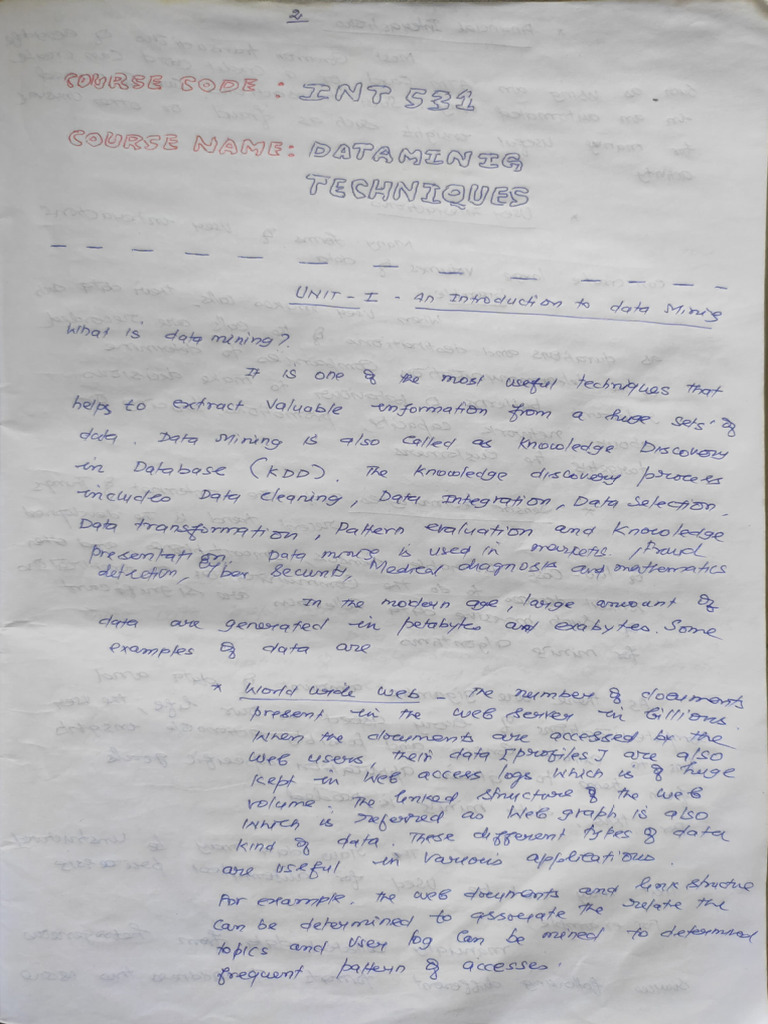 2
COURSE CODE : INT 531
COURSE NAME: DATAMINIG
TECHNIQUES
UNIT - I - An Introduction to data Mining
What is data mining?
It is one of the most useful techniques that
helps to extract valuable information from a huge sets of
data. Data Mining is also called as Knowledge Discovery
in Database (KDD). The knowledge discovery process
includes Data cleaning, Data Integration, Data Selection,
Data transformation, Pattern evaluation and Knowledge
presentation. Data mine is used in markets, Fraud
detection, Security, Medical diagnosis and mathematics
In the modern age, large amount of
data are generated in petabytes and exabytes. Some
examples of data are
* World wide web - The number of documents
present in the web server in billions.
When the documents are accessed by the
web users, their data [profiles] are also
kept in web access logs which is of huge
volume. The linked structure of the web
which is referred as Web graph is also
kind of data. These different types of data
are useful in various applications.
For example, the web documents and link structure
can be determined to associate the relate the
topics and user log can be mined to determined
frequent pattern of accesses.